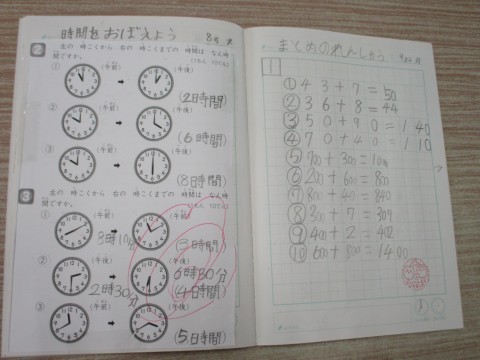 時間をおぼえよう
2 左の 時こくから 右の 時こくまでの 時間は なん時間ですか。
① (午前) (午後)
(2時間)
② (午前) (午後)
(6時間)
③ (午前) (午後)
(8時間)
3 左の 時こくから 右の 時こくまでの 時間は なん時間ですか。
① (午前) (午後)
8時10分
(3時間)
② (午後)
2時30分
6時30分
(4時間)
③
(5時間)
まとめのれんしゅう
1
① 43+7=50
② 36+8=44
③ 50+90=140
④ 70+40=110
⑤ 700+300=1000
⑥ 200+600=800
⑦ 800+40=840
⑧ 300+7=307
⑨ 400+2=402
⑩ 600+800=1400